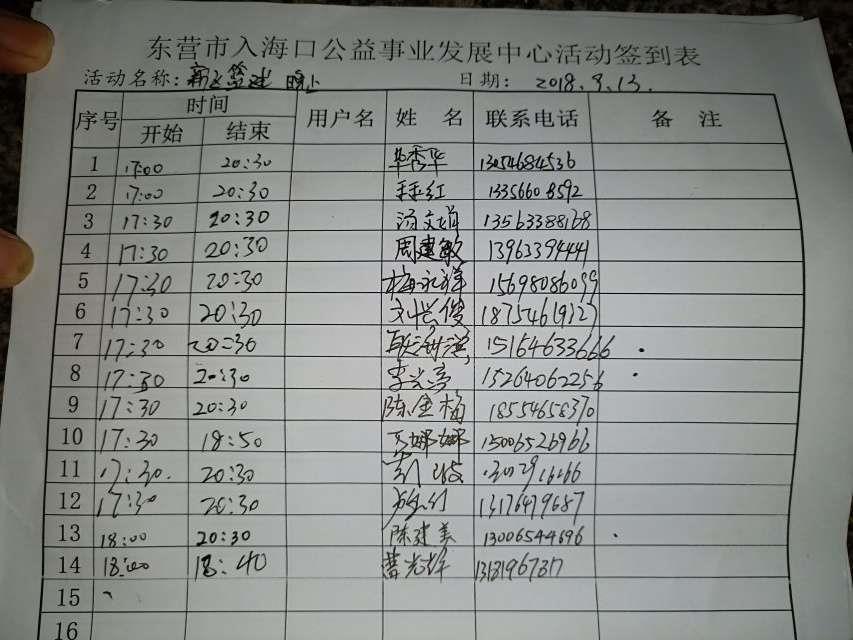 东营市入海口公益事业发展中心活动签到表
活动名称: 晚上 日期: 2018.9.13.
序号 时间 用户名 姓 名 联系电话 备 注
开始 结束
1 17:00 20:30 华秀华 13054684536
2 17:00 20:30 13356608592
3 17:30 20:30 汤文娟 13563388168
4 17:30 20:30 周建敏 13963394441
5 17:30 20:30 梅永祥 15698086099
6 17:30 20:30 刘兴俊 18754619127
7 17:30 20:30 15164633666
8 17:30 20:30 15264062256
9 17:30 20:30 陈金梅 18554658370
10 17:30 18:50 王娜娜 15006526966
11 17:30. 20:30
12 17:30 20:30 13176479687
13 18:00 20:30 陈建美 13006544696
14 18:00 18:40 1318196787
15
16